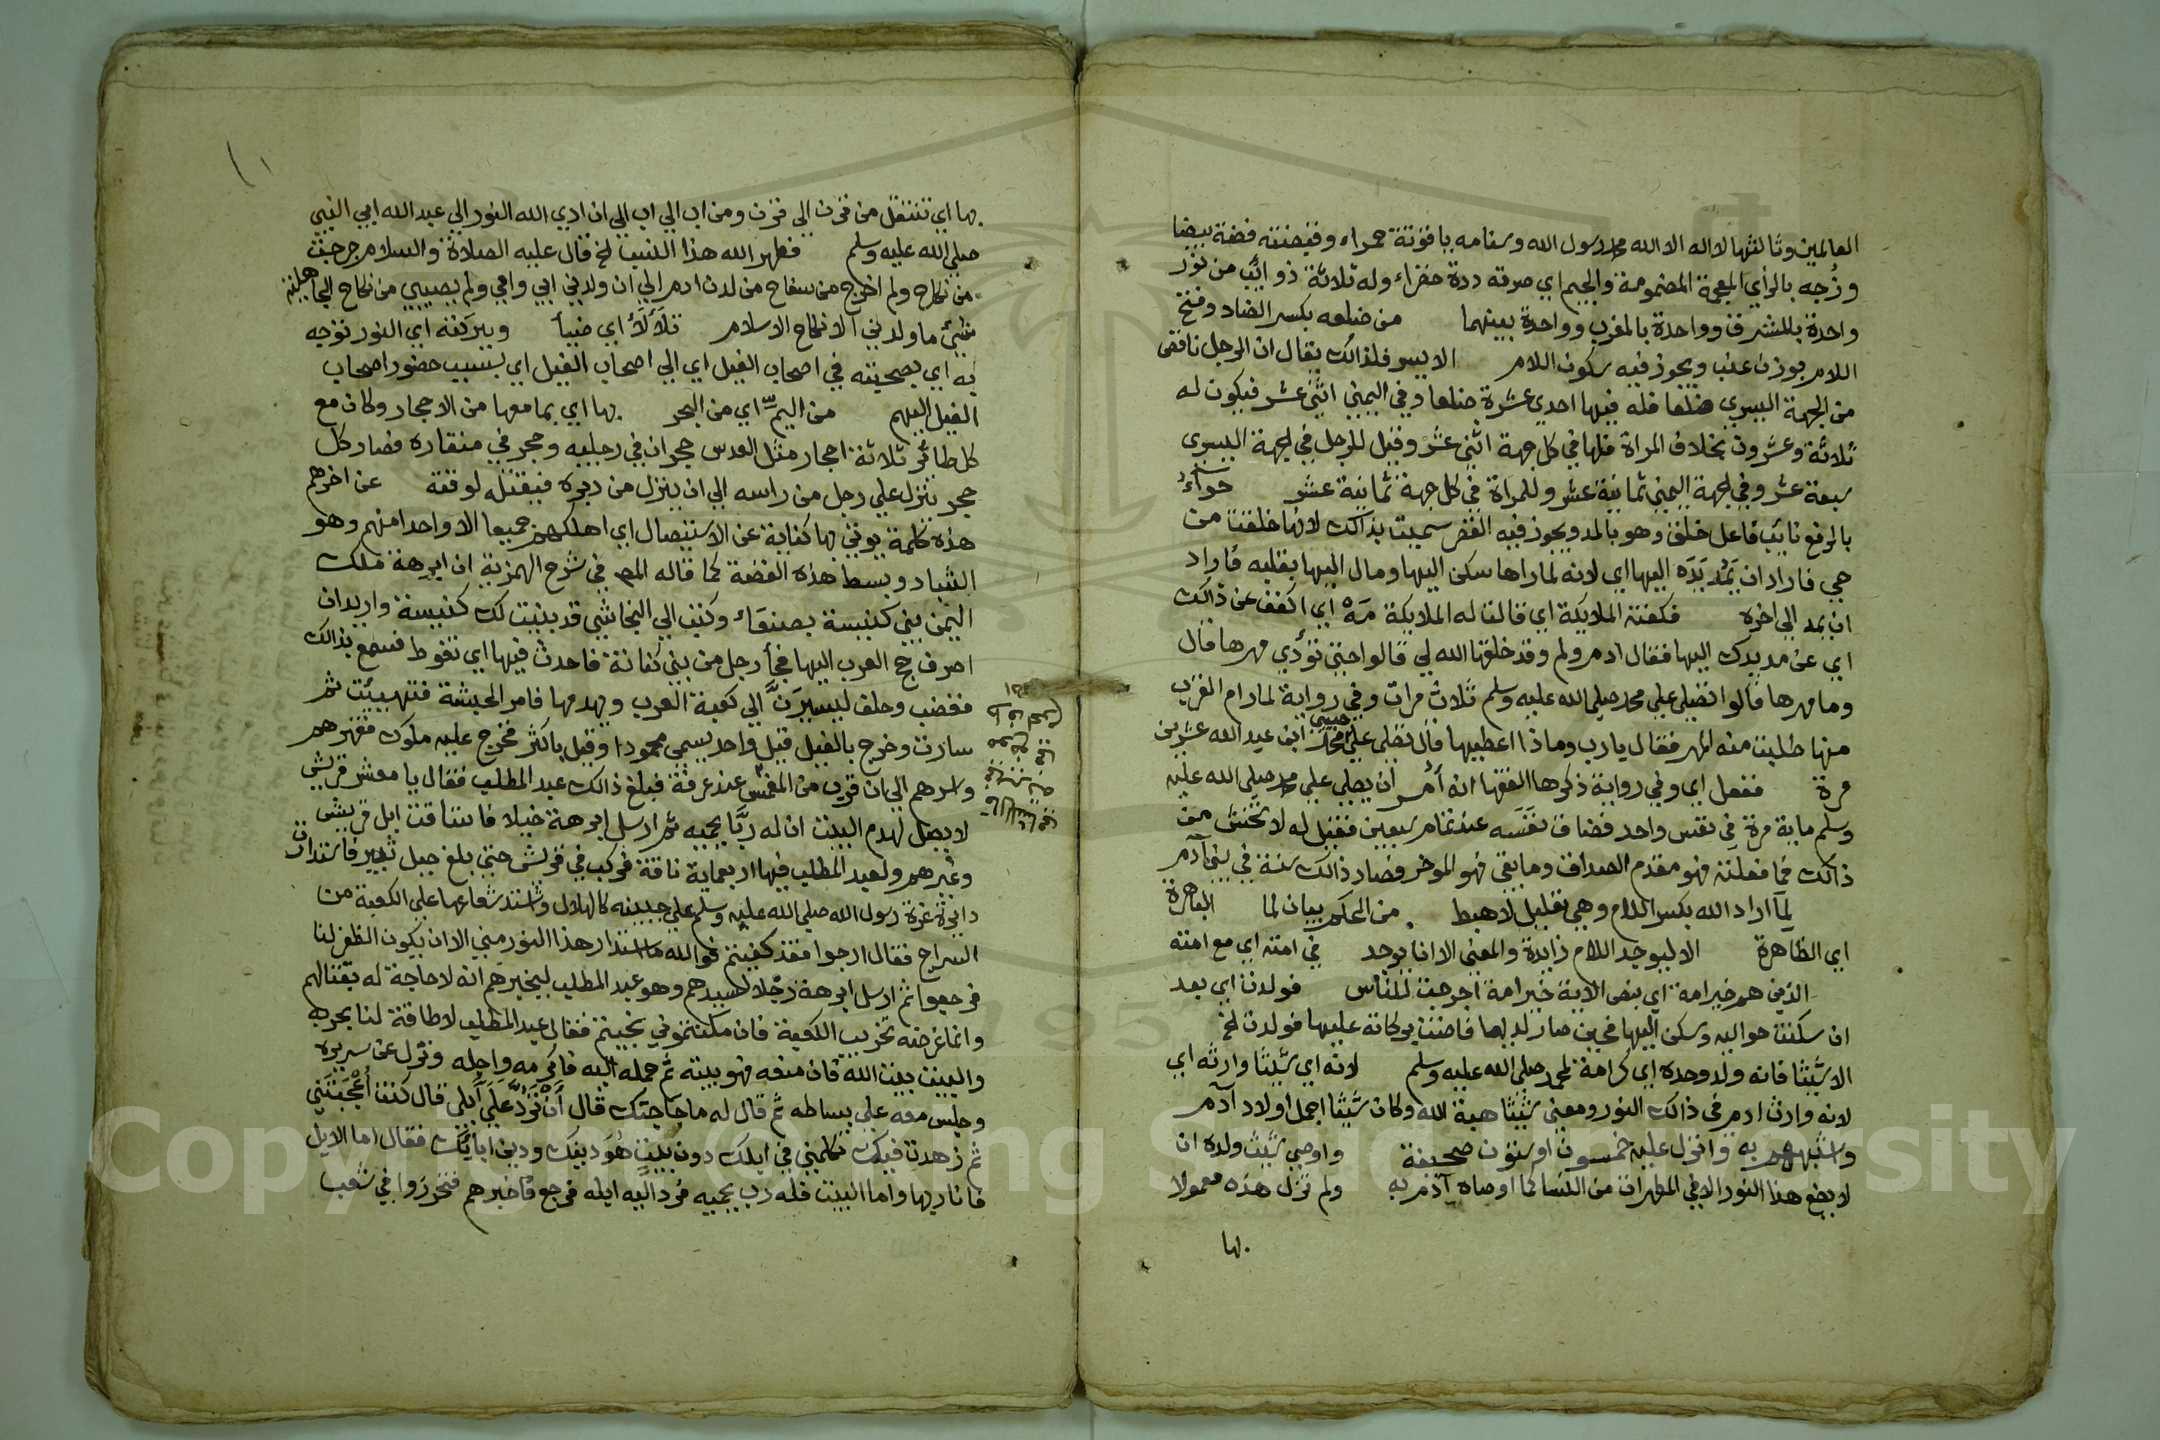 العالمين وثالثها لا اله الا الله محمد رسول الله وسنامه ياقوتة حمراء وقبضته فضة بيضا
وزُجه بالزاي المعجمة المضمومة والجيم اي صرفه درة خضراء وله ثلاثة ذوائب من نور
واحدة بالمشرق وواحدة بالمغرب وواحدة بينهما من ضلعه بكسر الضاد وفتح
اللام بوزن عنب ويجوز فيه سكون اللام الايسر فلذالك يقال ان الرجل ناقص
من الجهة اليسري ضلعا فله فيها احدي عشرة ضلعا وفي اليمني اثني عشر فيكون له
ثلاثة وعشرون بخلاف المراة فلها في كل جهة اثني عشر وقيل للرجل في الجهة اليسري
سبعة عشر وفي الجهة اليمني ثمانية عشر وللمراة في كل جهة ثمانية عشر حواءُ
بالرفع نائب فاعل خلق وهو بالمد ويجوز فيه القصر سميت بذالك لانها خلقت من
حي فاراد ان يَمُد يَدَه اليها اي لانه لما راها سكن اليها ومال اليها بقلبه فاراد
ان يمد الي اخره فكفته الملايكة اي قالت له الملايكة مَهْ اي اكفف عن ذالك
اي عن مد يدك اليها فقال ادم ولم وقد خلقها الله لي قالوا حتي تؤدي مهرها قال
وما مهرها قالوا تصلي علي محمد صلي الله عليه وسلم ثلاث مرات وفي رواية لما رام القرب
منها طلبت منه المهر فقال يارب وماذا اعطيها قال تصلي علي حبيبي محمد ابن عبد الله عشرين
مرة ففعل اي وفي رواية ذكرها الفقها انه أُمر ان يصلي علي محمد صلي الله عليه
وسلم ماية مرة في نفس واحد فضاق نفَسَه عند تمام سبعين فقيل له لا تخش من
ذالك فما فعلته فهو مقدم الصداق وما بقي فهو الموخر فصار ذالك سنة في بني آدم
لِمَا اراد الله بكسر اللام وهي تعليل لاهبط من الحكم بيان لما الباهرة
اي الظاهرة الا ليوجد اللام زايدة والمعني الا ان يوجد في امته اي مع امته
الذين هم خير امة اي بنص الاية خير امة اخرجت للناس فولدت اي بعد
ان سكنت حوا اليه وسكن اليها فحين صار لديها فاضت بركاته عليها فولدت الخ
الا شيثا فانه ولد وحده اي كرامة لمحمد صلي الله عليه وسلم لانه اي شيثا وارثه اي
لانه وارث ادم في ذالك النور ومعني شيثا هبة الله وكان شيثا اجمل اولاد آدم
واشبههم به وانزل عليه خمسون او ستون صحيفة واوصي شيث ولده ان
لا يضع هذا النور الا في المطهرات من النسا كما اوصاه آدم به ولم تزل هذه معمولا
بها
بها اي تنتقل من قرن الي قرن ومن اب الي اب الي ان ادي الله النور الي عبد الله ابي النبي
صلي الله عليه وسلم فطهر الله هذا النسب الخ قال عليه الصلاة والسلام خرجت
من نكاح ولم اخرج من سفاح من لدن ادم الي ان ولدني ابي وامي ولم يصيبني من نكاح الجاهلية
شيئ ما ولدني الا نكاح الاسلام تلَألَأ اي ضيأ وببركته اي النور توجه
به اي بصحبته في اصحاب الفيل اي الي اصحاب الفيل اي بسبب حضور اصحاب
الفيل اليهم من اليمّ اي من البحر بها اي بما معها من الاحجار وكان مع
كل طائر ثلاثة احجار مثل العدس حجران في رجليه وحجر في منقاره فصار كل
حجر تنزل علي رجل من راسه الي ان ينزل من دبره فيقتله لوقته عن اخرهم
هذه كلمة يوتي بها كناية عن الاستيصال اي اهلكهم جميعا الا واحدا منهم وهو
وبسط هذه القصة كما قاله في شرح الهمزية ان ابرهة ملك
اليمن بني كنيسة بصنعَاء وكتب الي النجاشي قد بنيت لك كنيسة واريد ان
اصرف حج العرب اليها فجأ رجل من بني كنانة فاحدث فيها اي تغوط فسمع بذالك
فغضب وحلف ليسيرَنَّ الي كعبة العرب ويهدمها فامر الحبشة فتهيئت ثم
سارت وخرج بالفيل قيل واحد يسمي محمودا وقيل باكثر فخرج عليه ملوك فقهرهم
واسرهم الي ان قرب من المغمس عند عرفة فبلغ ذالك عبد المطلب فقال يا معشر قريش
لا يصل لهدم البيت ان له ربًّا يحميه ثم ارسل ابرهة خيلا فاستاقت ابل قريش
وغيرهم ولعبد المطلب فيها اربعماية ناقة فركب في قريش حتي بلغ جبل ثبير فاستدارت
دايرة غرة رسول الله صلي الله عليه وسلم علي جبينه كالهلال واشتد شعاعها علي الكعبة من
السراج فقال ارجعوا فقد كفيتم فوالله ما استدار هذا النور مني الا ان يكون الظفر لنا
فرجعوا ثم ارسل ابرهة رجلا لسيدهم وهو عبد المطلب ليخبرهم انه لا حاجة له بقتالهم
وانما غرضه تخريب الكعبة فان مكنتموني نجيتم فقال عبد المطلب لا طاقة لنا بحربه
والبيت بيت الله فان منعه فهو بيته ثم حمله اليه فاكرمه واجله ونزل عن سريره
وجلس معه علي بساطه ثم قال له ما حاجتك قال أَنْ تَرُدَّ عَلَيَّ اِبلي قال كنت أَعْجَبْتَني
ثم زهدت فيك تكلمني في ابلك دون بيت هُوَ دينك ودين ابايك فقال اما الابل
فانا ربها واما البيت فله رب يحميه فرد اليه ابله فرجع فاخبرهم فتحرزوا في شعب